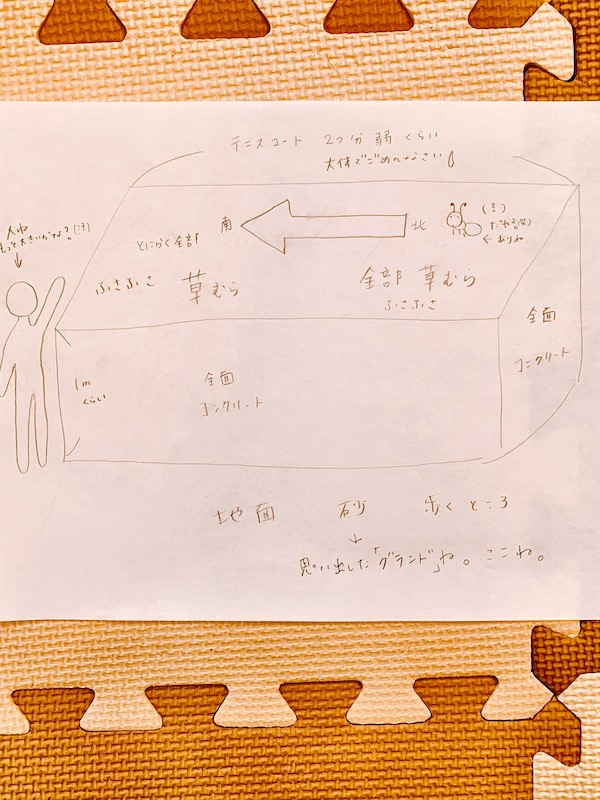 テニスコート 2つ分 弱 くらい
大体でごめんなさい
人ね
もっと大きいかな?(汗)
↓
とにかく全部
南
北
(笑)
← ありね
ふさふさ 草むら
全部 草むら
ふさふさ
全面
コンクリート
1m
くらい
全面
コンクリート
地面 砂 歩くところ
↓
思い出した「グランド」ね。ここね。